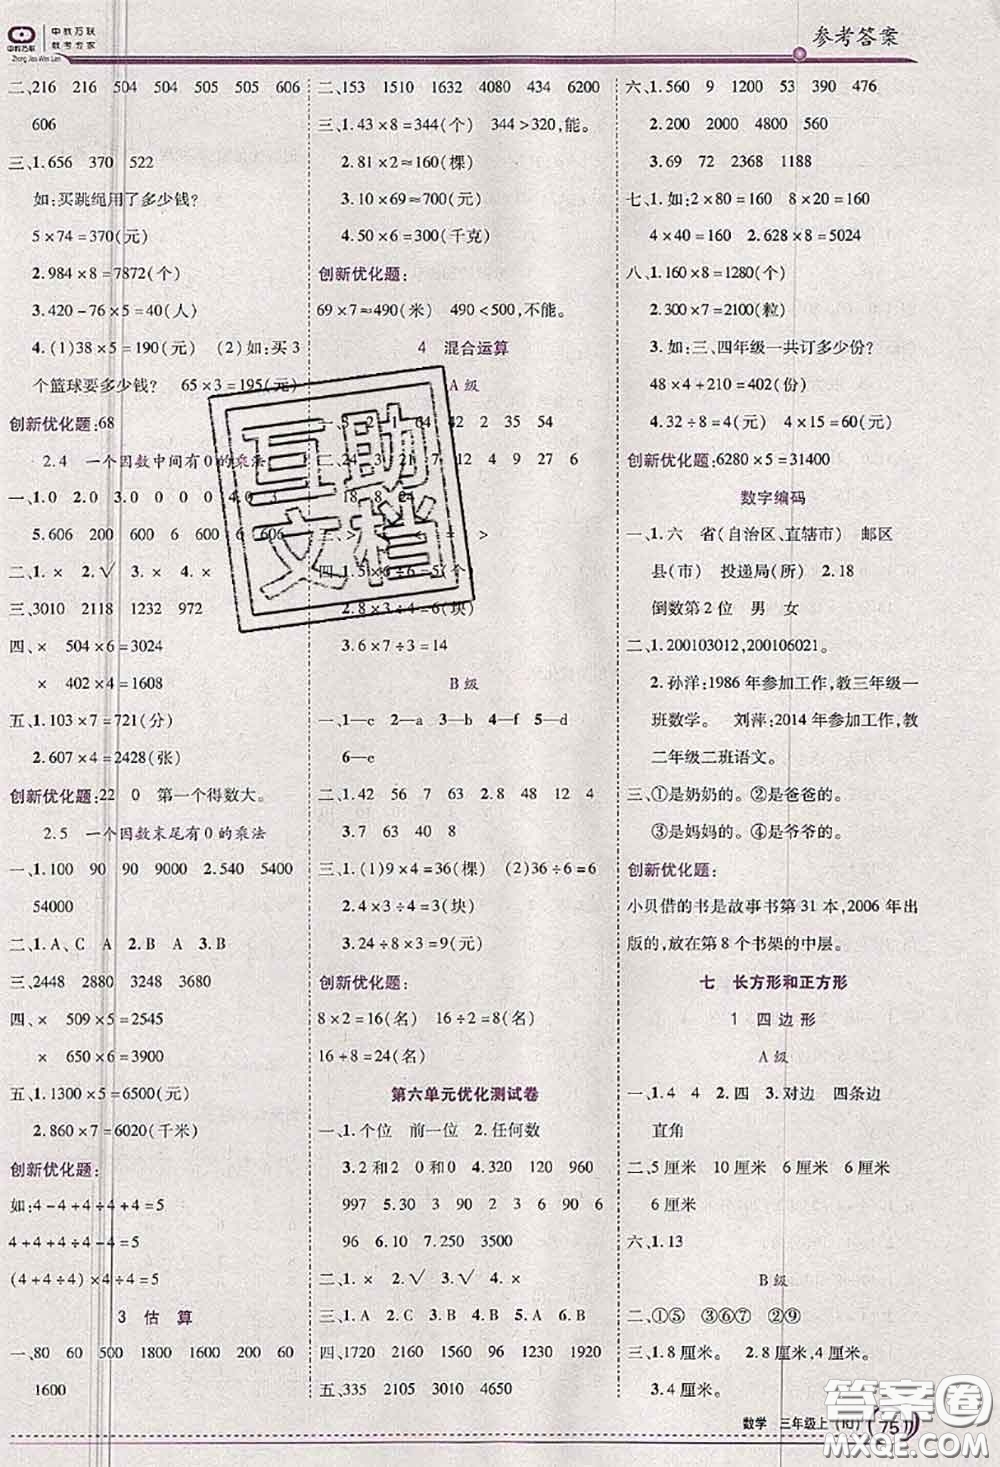 中教万联
教考专家
中教万联
Zhong Jiao Wan Lian
参考答案
二、216 216 504 504 505 505 606
606
三、1.656 370 522
如:买跳绳用了多少钱?
5×74=370(元)
2.984×8=7872(个)
3.420-76×5=40(人)
4.(1)38×5=190(元) (2)如:买3
个篮球要多少钱? 65×3=195(元)
创新优化题:68
2.4 一个因数中间有0的乘法
一、1.0 2.0 3.0 0 0 0 4.0 3
5.606 200 600 6 606
二、1.× 2.√ 3.× 4.×
三、3010 2118 1232 972
四、× 504×6=3024
× 402×4=1608
五、1.103×7=721(分)
2.607×4=2428(张)
创新优化题:22 0 第一个得数大。
2.5 一个因数末尾有0的乘法
一、1.100 90 90 9000 2.540 5400
54000
二、1.A、C A 2.B A 3.B
三、2448 2880 3248 3680
四、× 509×5=2545
× 650×6=3900
五、1.1300×5=6500(元)
2.860×7=6020(千米)
创新优化题:
如:4-4+4÷4+4=5
4+4+4÷4-4=5
(4+4÷4)×4÷4=5
3 估算
一、80 60 500 1800 1600 200 60
1600
二、153 1510 1632 4080 434 6200
三、1.43×8≈344(个) 344>320,能。
2.81×2≈160(棵)
3.10×69≈700(元)
4.50×6=300(千克)
创新优化题:
69×7≈490(米) 490<500,不能。
4 混合运算
A级
一、5 2 1 64 42 2 35 54
二、24 3 21 7 12 4 9 27 6
18 8 24
三、> < = >
四、1.5×6÷6=5(个)
2.8×3÷4=6(块)
3.6×7÷3=14
B级
一、1—c 2—a 3—b 4—f 5—d
6—e
二、1.42 56 7 63 2.8 48 12 4
3.7 63 40 8
三、1.(1)9×4=36(棵) (2)36÷6=6(棵)
2.4×3÷4=3(块)
3.24÷8×3=9(元)
创新优化题:
8×2=16(名) 16÷2=8(名)
16+8=24(名)
第六单元优化测试卷
一、1.个位 前一位 2.任何数
3.2和0 2和0 4.320 120 960
997 5.30 3 90 90 6 6
96 6.10 7.250 3500
二、1.× 2.√ 3.√ 4.×
三、1.A 2.C 3.B 4.B 5.A 6.B
四、1720 1421 1560 96 1230 1920
五、335 2105 3010 4650
六、1.560 9 1200 53 390 476
2.200 2000 4800 560
3.69 72 2368 1188
七、1.如:2×80=160 8×20=160
4×40=160 2.628×8=5024
八、1.160×8=1280(个)
2.300×7=2100(粒)
3.如:三、四年级一共订多少份?
48×4+210=402(份)
4.32÷8=4(元) 4×15=60(元)
创新优化题:6280×5=31400
数字编码
一、1.六 省(自治区、直辖市) 邮区
县(市) 投递局(所) 2.18
倒数第2位 男 女
二、1.200103012,200106021。
2.孙洋:1986年参加工作,教三年级一
班数学。 刘萍:2014年参加工作,教
二年级二班语文。
三、①是奶奶的。②是爸爸的。
③是妈妈的。④是爷爷的。
创新优化题:
小贝借的书是故事书第31本,2006年出
版的,放在第8个书架的中层。
七 长方形和正方形
1 四边形
A级
一、1.4 4 2.四 3.对边 四条边
直角
二、5厘米 10厘米 6厘米 6厘米
6厘米
六、1.13
B级
二、①⑤ ③⑥⑦ ②⑨
三、1.8厘米。 2.8厘米,4厘米。
3.4厘米。
数学 三年级上(RJ) 75
互助
文档
答案圈
MXQE.COM